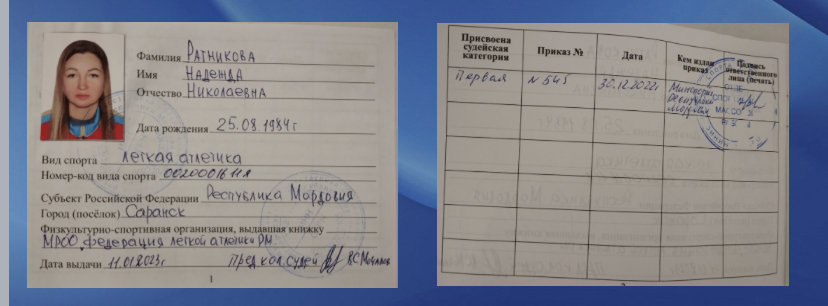 Фамилия Ратникова
Имя Надежда
Отчество Николаевна
Дата рождения 25.08.1984г
Вид спорта легкая атлетика
Номер-код вида спорта 0020001611Я
Субъект Российской Федерации Республика Мордовия
Город (посёлок) Саранск
Физкультурно-спортивная организация, выдавшая книжку
МРОО федерация легкой атлетики РМ
Дата выдачи 11.01.2023г Пред.кол.судей
1
Присвоена судейская категория
Приказ №
Дата
Кем издан приказ
Подпись ответственного лица (печать)
Первая
N 545
30.12.2022г
Республики
Мордовия